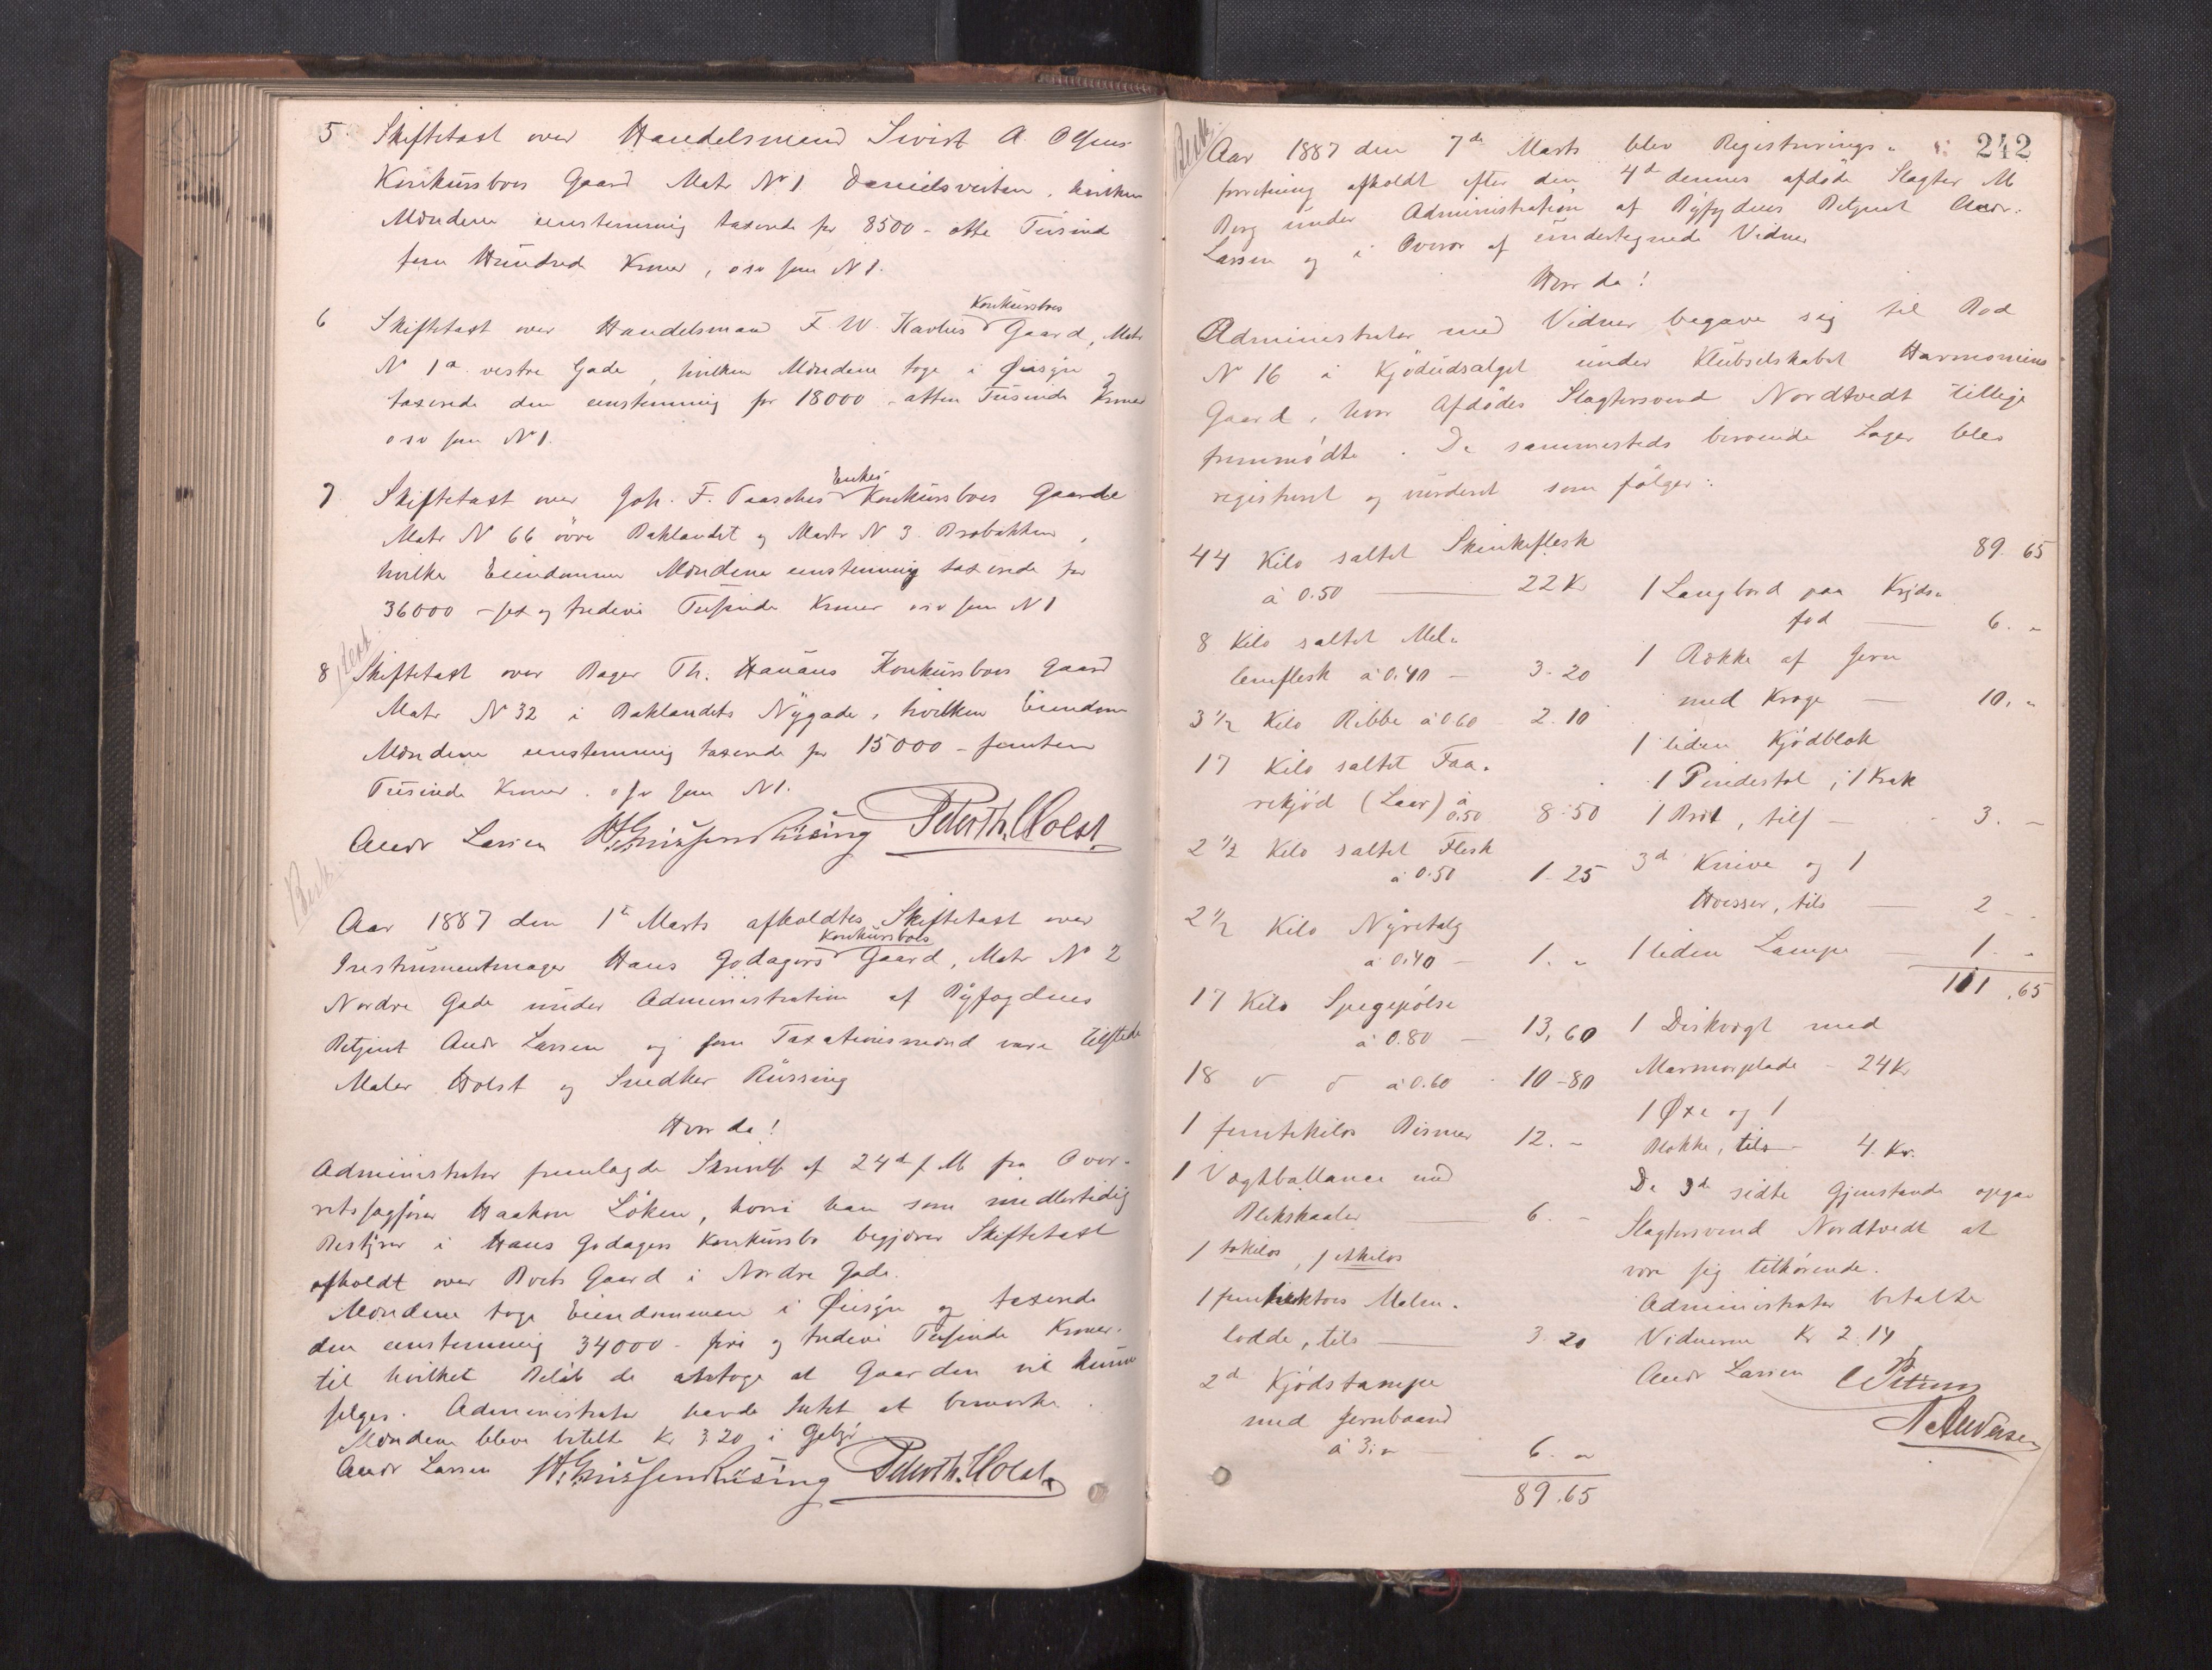 5. Skiftetaxt over Handelsmand Sivert A. Olsens
Konkursboes Gaard Matr № 1 Danielsveiten, hvilken
Mændene eenstemmig taxerede for 8500 - otte Tusind
fem Hundrede Kroner, osv som № 1.
6 Skiftetaxt over Handelsmand F. W. Kavlies Konkursboes Gaard, Matr
№ 1a vestre Gade, hvilken Mændene toge i Øiesyn
taxerede den eenstemmig for 18000 - atten Tusinde Kroner
osv som № 1.
7. Skiftetaxt over Joh. F. Paasches Enkes Konkursboes Gaarde
Matr № 66 övre Baklandet og Matr № 3 Brobakken,
hvilke Eiendomme Mændene eenstemmig taxerede for
36000 - sex og tredive Tusinde Kroner osv som № 1
8 Skiftetaxt over Bager Th. Hauans Konkursboes Gaard
Matr № 32 i Baklandets Nygade, hvilken Eiendom
Mændene eenstemmig taxerede for 15000 - femten
Tusinde Kroner. osv som № 1.
Andr Larsen Rüsing Peter Th. Holst
Besk.
Aar 1887 den 1te Marts afholdtes Skiftetaxt over
Instrumentmager Hans Godagers Konkursboes Gaard, Matr № 2
Nordre Gade under Administration af Byfogdens
Betjent Andr Larsen og som Taxationsmænd vare tilstede
Maler Holst og Snedker Rüssing
Hvor da!
Administrator fremlagde Skrivelse af 24de f. M. fra Over-
retssagfører Haakon Löken, hvori han som midlertidig
Bestyrer i Hans Godagers Konkursbo begjærer Skiftetaxt
afholdt over Boets Gaard i Nordre Gade.
Mændene toge Eiendommen i Øiesyn og taxerede
den eenstemmig 34000 - fire og tredive Tusinde Kroner.
til hvilket Beløb de antoge at Gaarden vil kunne
selges. Administrator havde Intet at bemærke.
Mændene bleve betalte Kr 3.20 i Gebyr.
Andr Larsen Rüsing Peter Th. Holst
242
Besk.
Aar 1887 den 7de Marts blev Registrerings-
forretning afholdt efter den 4de dennes afdøde Slagter M
Berg under Administration af Byfogdens Betjent Andr:
Larsen og i Overvær af undertegnede Vidner
Hvor da!
Administrator med Vidner begave sig til Bod
№ 16 i Kjødudsalget under Klubselskabet Harmoniens
Gaard, hvor Afdødes Slagtersvend Nordtvedt tillige
fremmødte. De sammesteds beroende Lager blev
registreret og vurderet som følger:
44 Kilo saltet Skinkeflesk
à 0.50 — 22 Kr
8 Kilo saltet Mel-
lemflesk à 0.40 — 3.20
3 1/2 Kilo Ribbe à 0.60 - 2.10
17 Kilo saltet Faa-
rekjød (Laar) à 0.50 8.50
2 1/2 Kilo saltet Flesk
à 0.50 1-25
2 1/2 Kilo Nyretalg
à 0.40 — 1. „
17 Kilo Spegepölse
à 0.80 — 13,60
18 " " à 0.60 - 10-80
1 femtekilos Bismer 12. -
1 Vegtballance med
Blikskaaler — 6. -
1 tokilos, 1 etkilos
1 femhektors Malm-
lodde, tils — 3.20
2de Kjödstampe
med Jernbaand
à 3: „ — 6. „
89.65
89.65
1 Langbord paa Kryds-
fod — 6. „
1 Række af Jern
med Kroge — 10. „
1 liden Kjödblok
1 Pindestol, 1 Krak
1 Bret, tils — 3. -
3de Knive og 1
Hvesser, tils — 2 - -
1 liden Lampe — 1. „
111.65
1 Diskvegt med
Marmorplade - 24 Kr
1 Øxe og 1
Blokke, tils - 4. Kr.
De 3de sidste Gjenstande opgav
Slagtersvend Nordtvedt at
være sig tilhørende.
Administrator betalte
Vidnerne Kr 2.14
Andr Larsen
N Andersen